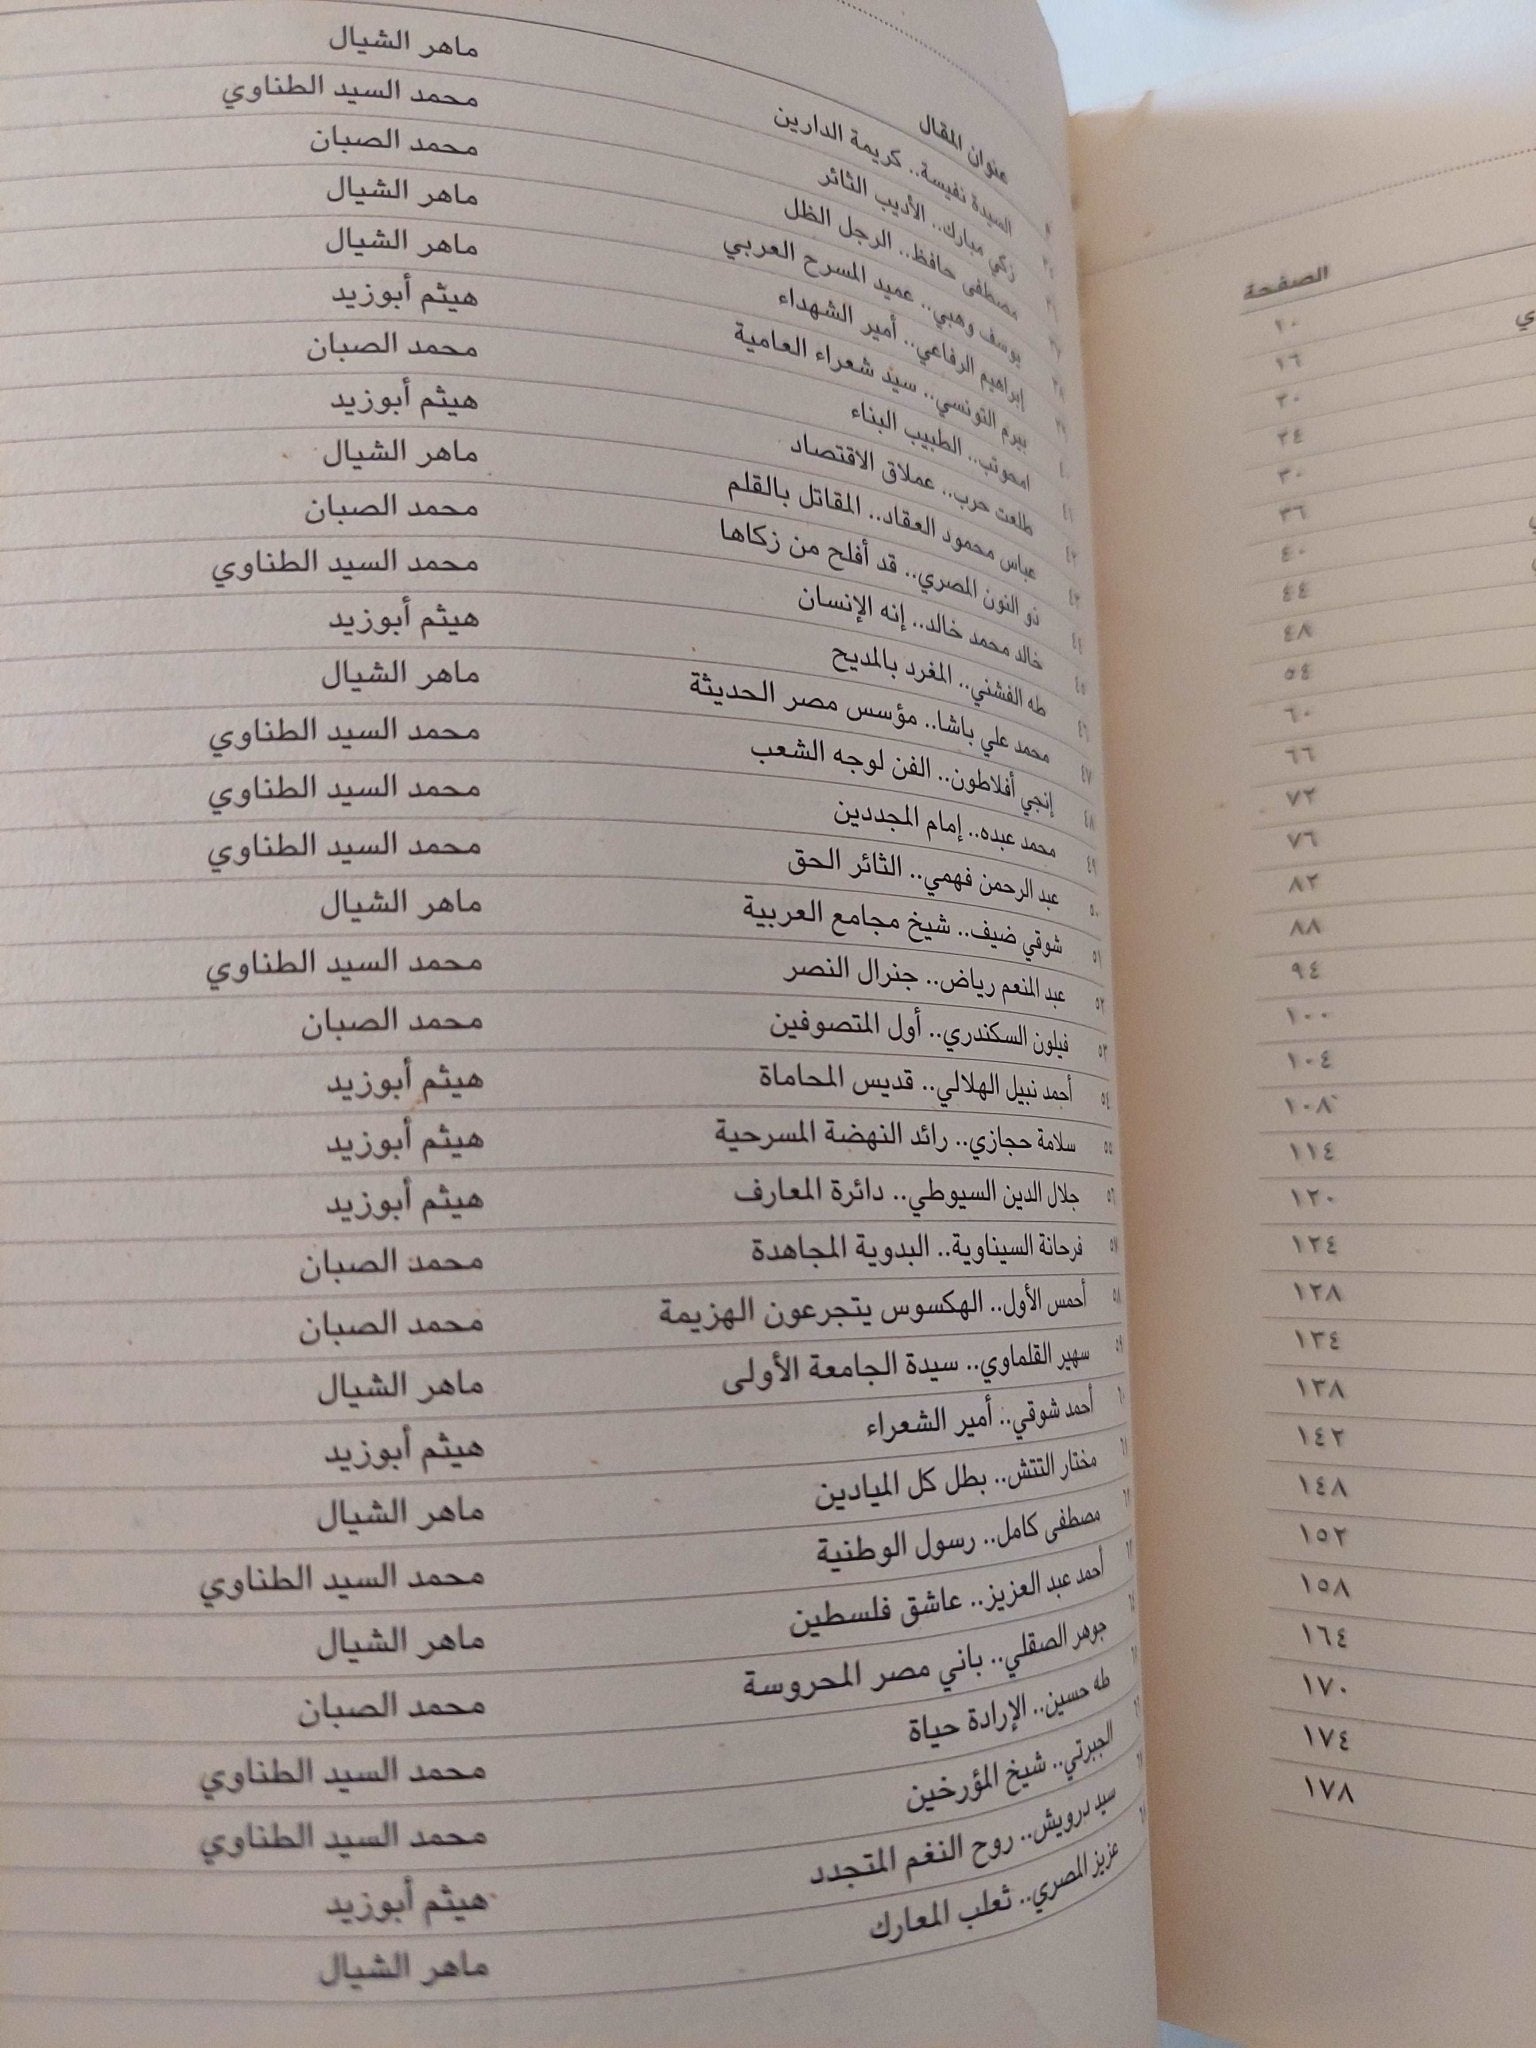 الصفحة
١٠
١٦
٢٠
٢٤
٣٠
٣٦
٤٠
٤٤
٤٨
٥٤
٦٠
٦٦
٧٢
٧٦
٨٢
٨٨
٩٤
١٠٠
١٠٤
١٠٨
١١٤
١٢٠
١٢٤
١٢٨
١٣٤
١٣٨
١٤٢
١٤٨
١٥٢
١٥٨
١٦٤
١٧٠
١٧٤
١٧٨
عنوان المقال
السيدة نفيسة.. كريمة الدارين ماهر الشيال
زكي مبارك.. الأديب الثائر محمد السيد الطناوي
مصطفى حافظ.. الرجل الظل محمد الصبان
يوسف وهبي.. عميد المسرح العربي ماهر الشيال
إبراهيم الرفاعي.. أمير الشهداء ماهر الشيال
بيرم التونسي.. سيد شعراء العامية هيثم أبوزيد
امحوتب.. الطبيب البناء محمد الصبان
٤٢ طلعت حرب.. عملاق الاقتصاد هيثم أبوزيد
٤٣ عباس محمود العقاد.. المقاتل بالقلم ماهر الشيال
٤٤ ذو النون المصري.. قد أفلح من زكاها محمد الصبان
٤٥ خالد محمد خالد.. إنه الإنسان محمد السيد الطناوي
٤٦ طه الفشني.. المغرد بالمديح هيثم أبوزيد
٤٧ محمد علي باشا.. مؤسس مصر الحديثة ماهر الشيال
٤٨ إنجي أفلاطون.. الفن لوجه الشعب محمد السيد الطناوي
٤٩ محمد عبده.. إمام المجددين محمد السيد الطناوي
٥٠ عبد الرحمن فهمي.. الثائر الحق محمد السيد الطناوي
٥١ شوقي ضيف.. شيخ مجامع العربية ماهر الشيال
٥٢ عبد المنعم رياض.. جنرال النصر محمد السيد الطناوي
٥٣ فيلون السكندري.. أول المتصوفين محمد الصبان
٥٤ أحمد نبيل الهلالي.. قديس المحاماة هيثم أبوزيد
٥٥ سلامة حجازي.. رائد النهضة المسرحية هيثم أبوزيد
٥٦ جلال الدين السيوطي.. دائرة المعارف هيثم أبوزيد
٥٧ فرحانة السيناوية.. البدوية المجاهدة محمد الصبان
٥٨ أحمس الأول.. الهكسوس يتجرعون الهزيمة محمد الصبان
٥٩ سهير القلماوي.. سيدة الجامعة الأولى ماهر الشيال
أحمد شوقي.. أمير الشعراء هيثم أبوزيد
مختار التتش.. بطل كل الميادين ماهر الشيال
مصطفى كامل.. رسول الوطنية محمد السيد الطناوي
أحمد عبد العزيز.. عاشق فلسطين ماهر الشيال
جوهر الصقلي.. باني مصر المحروسة محمد الصبان
طه حسين.. الإرادة حياة محمد السيد الطناوي
الجبرتي.. شيخ المؤرخين محمد السيد الطناوي
سيد درويش.. روح النغم المتجدد هيثم أبوزيد
عزيز المصري.. ثعلب المعارك ماهر الشيال